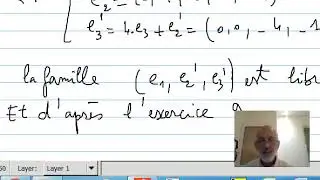 { e₃' = 4.e₃ + e₂' = (0,0,-4,-1
la famille (e₁, e₂', e₃') est libr
Et d'après l'exercice 9
60 Layer: Layer 1